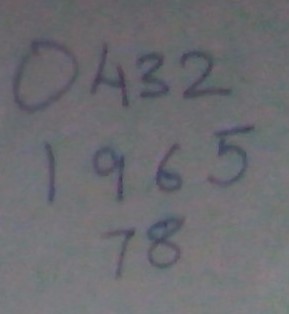 0432
1965
78